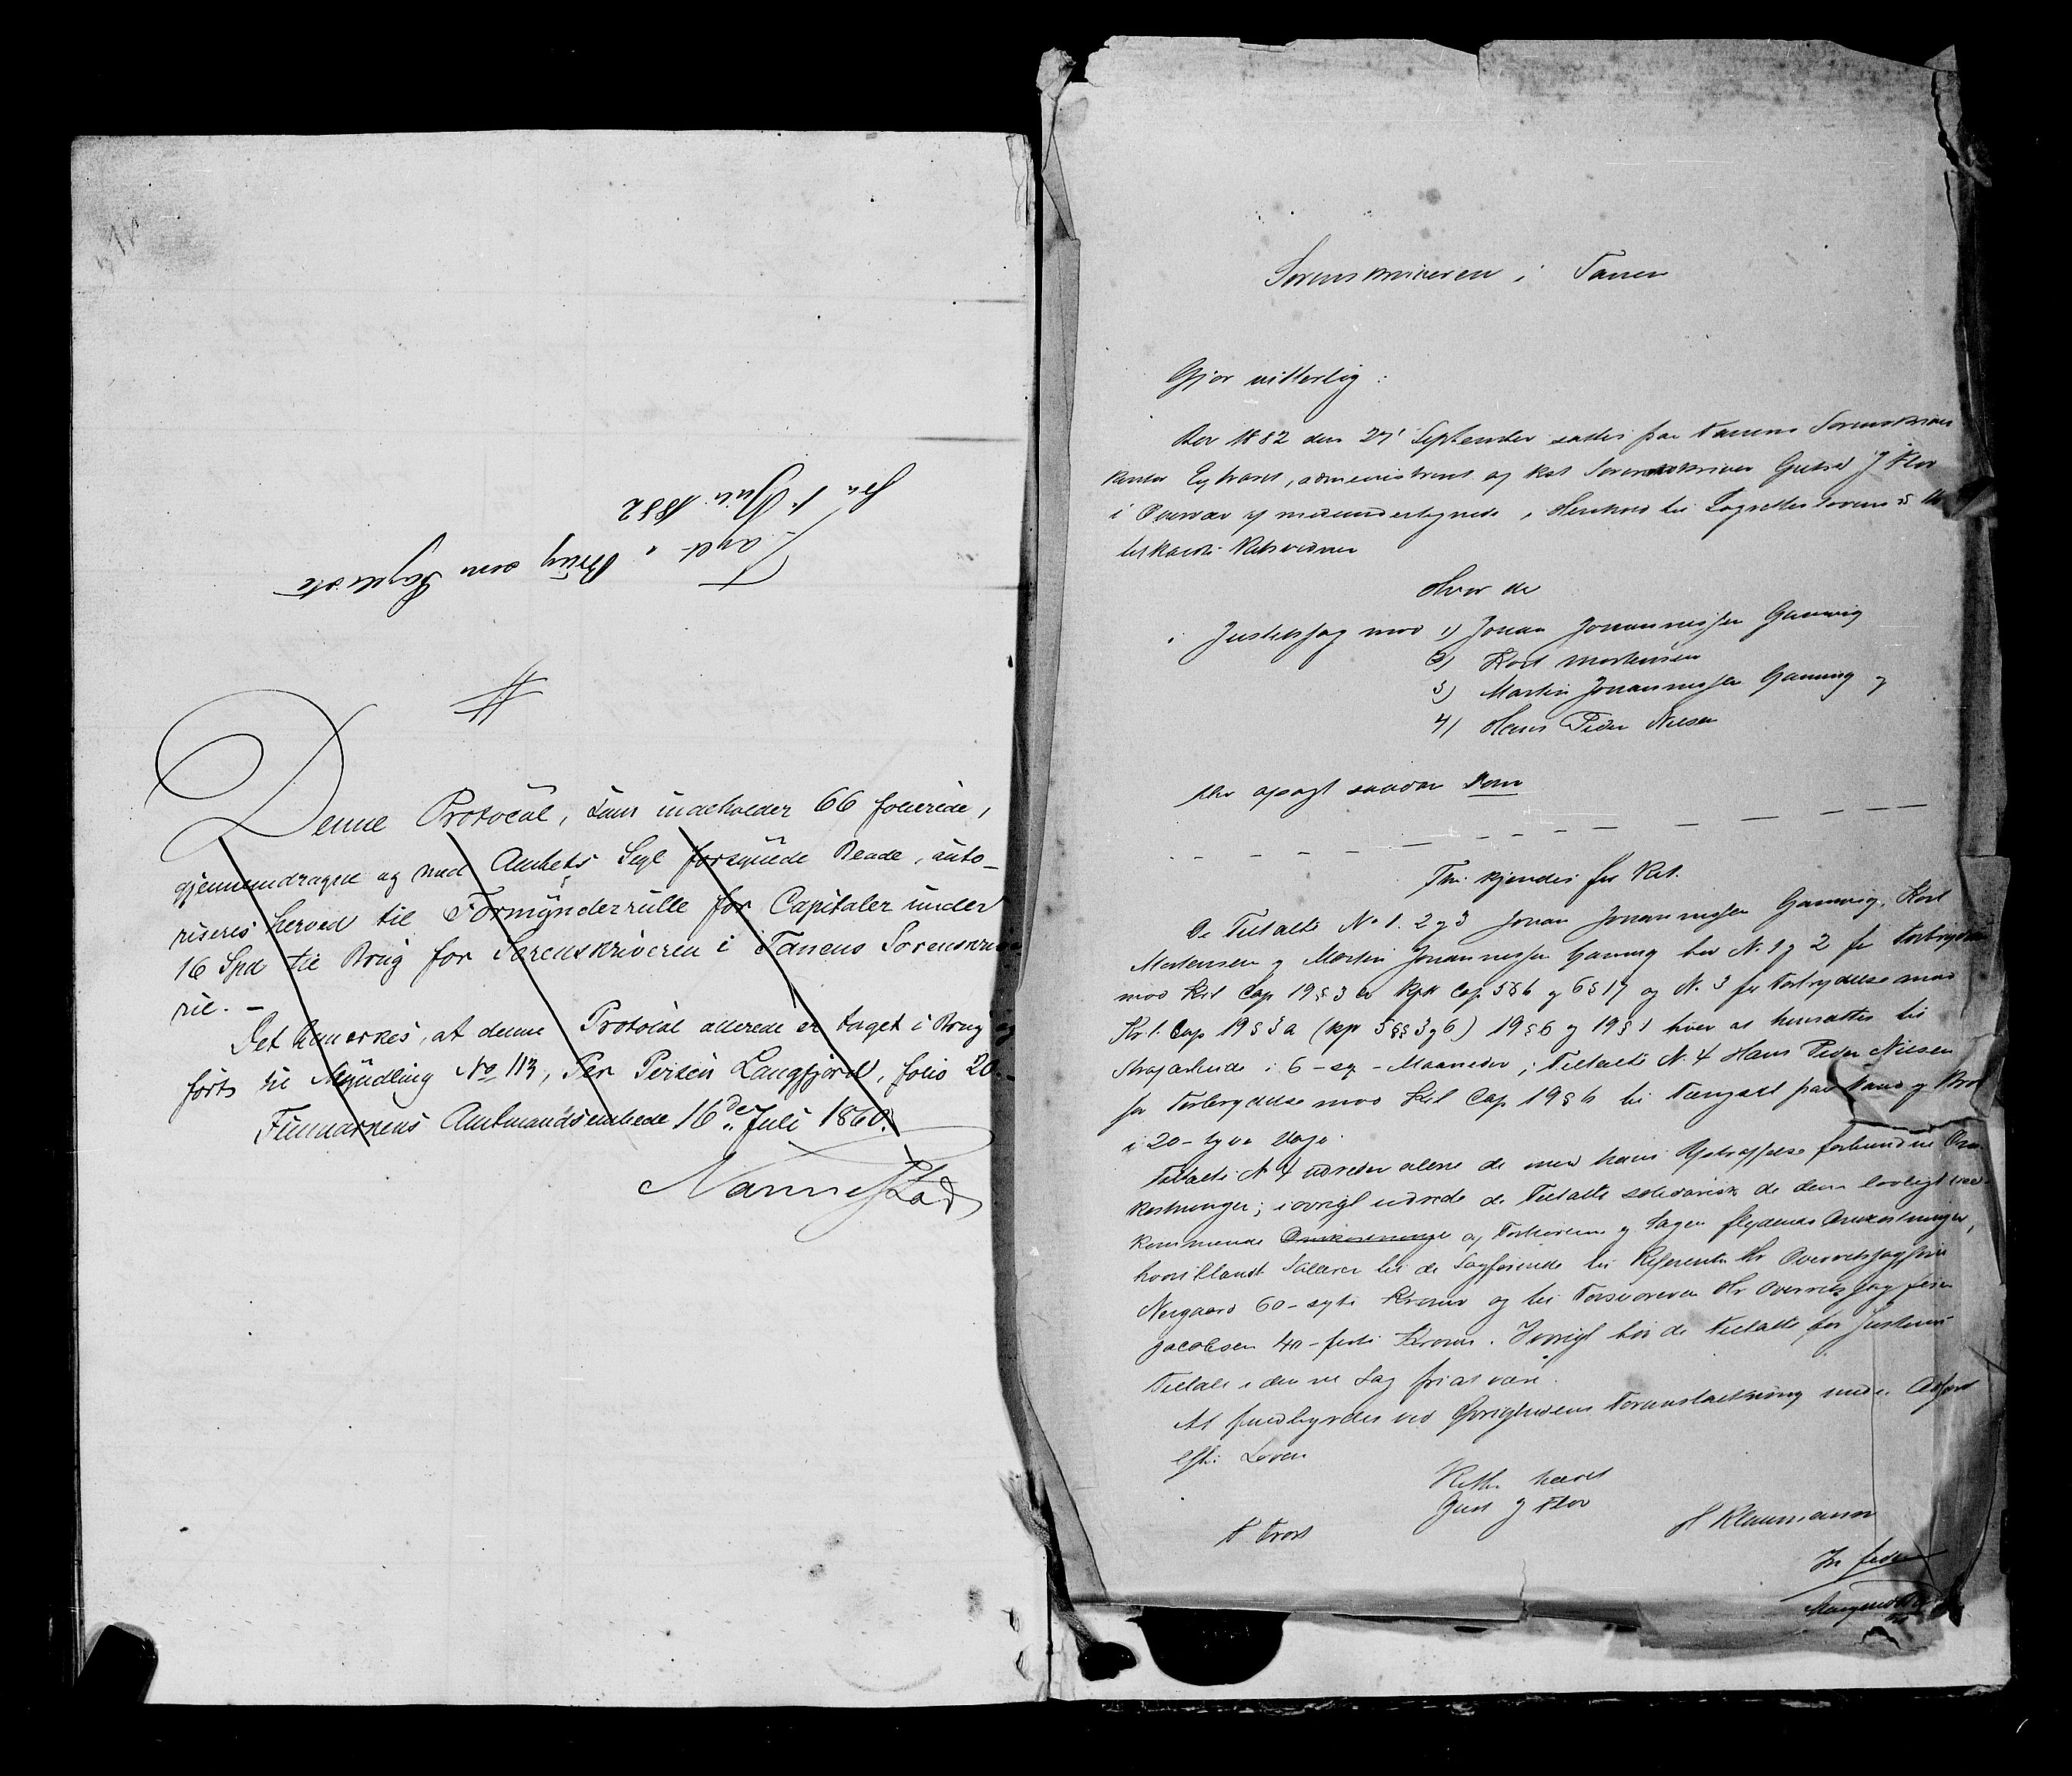 Taget i Brug som Dagliste
fra 1 Juli 1882
Denne Protocol, som indeholder 66 folierede,
gjennemdragne og med Amtets Segl forsynede Blade, auto-
riseres herved til Formynderrulle for Capitaler under
16 Spd til Brug for Sorenskriveren i Tanens Sorenskrive
rie. -
Det bemærkes, at denne Protocol allerede er taget i Brug og
ført til Myndling No 113, Per Persen Langfjord, folio 20. -
Finmarkens Amtmandsembede 16de Juli 1860.
Nannestad
Sorenskriveren i Tanen
Gjør vitterlig:
Aar 1882 den 27' September sattes paa Tanens Sorenskriver
kontor Extraret, administreret af kst Sorenskriver Gustav J Flor
i Overvær af medundertegnede i Henhold til Lagrettesloven §
tilkaldte Retsvidner
Hvor da
i Justitssag mod 1) Johan Johannessen Gamvig
2) Kort Mortensen
3) Martin Johannessen Gamvig og
4) Hans Peder Nilsen
blev afsagt saadan Dom
Thi kjendes for Ret.
De Tiltalte No 1. 2 og 3 Johan Johannessen Gamvig, Kort
Mortensen og Martin Johannessen Gamvig bør N. 1 og 2 for Forbrydelse
mod Krl Cap 19 § 3 cfr Cap. 5 § 6 og 6 § 17 og N. 3 for Forbrydelse mod
Kr l. Cap 19 § 3 a (kfr 5 §§ 3 og 6) 19 § 6 og 19 § 1 hver at hensættes til
Strafarbeide i 6 - sex - Maaneder; Tiltalte N. 4 Hans Peder Nilsen
for Forbrydelse mod Krl Cap 19 § 6 til Fængsel paa Vand og Brød
i 20 - tyve Dage.
Tiltalte N 4 udreder alene de med hans Bestraffelse forbundne Om-
kostninger; iøvrigt udrede de Tiltalte solidarisk de dem lovligt ved-
kommende Omkostninger af Forhørene og Sagen flydende Omkostninger,
hvoriblandt Salærer til de Sagførende til Referenten Hr Overretssagfører
Nergaard 60 - sexti Kroner og til Forsvareren Hr Overretssagfører
Jacobsen 40 - firti Kroner. Iøvrigt bør de Tiltalte for Justitiens
Tiltale i denne Sag fri at være.
At fuldbyrdes ved Øvrighedens Foranstaltning under Adfærd
efter Loven
Retten hævet
Gust J Flor
H Klaumann